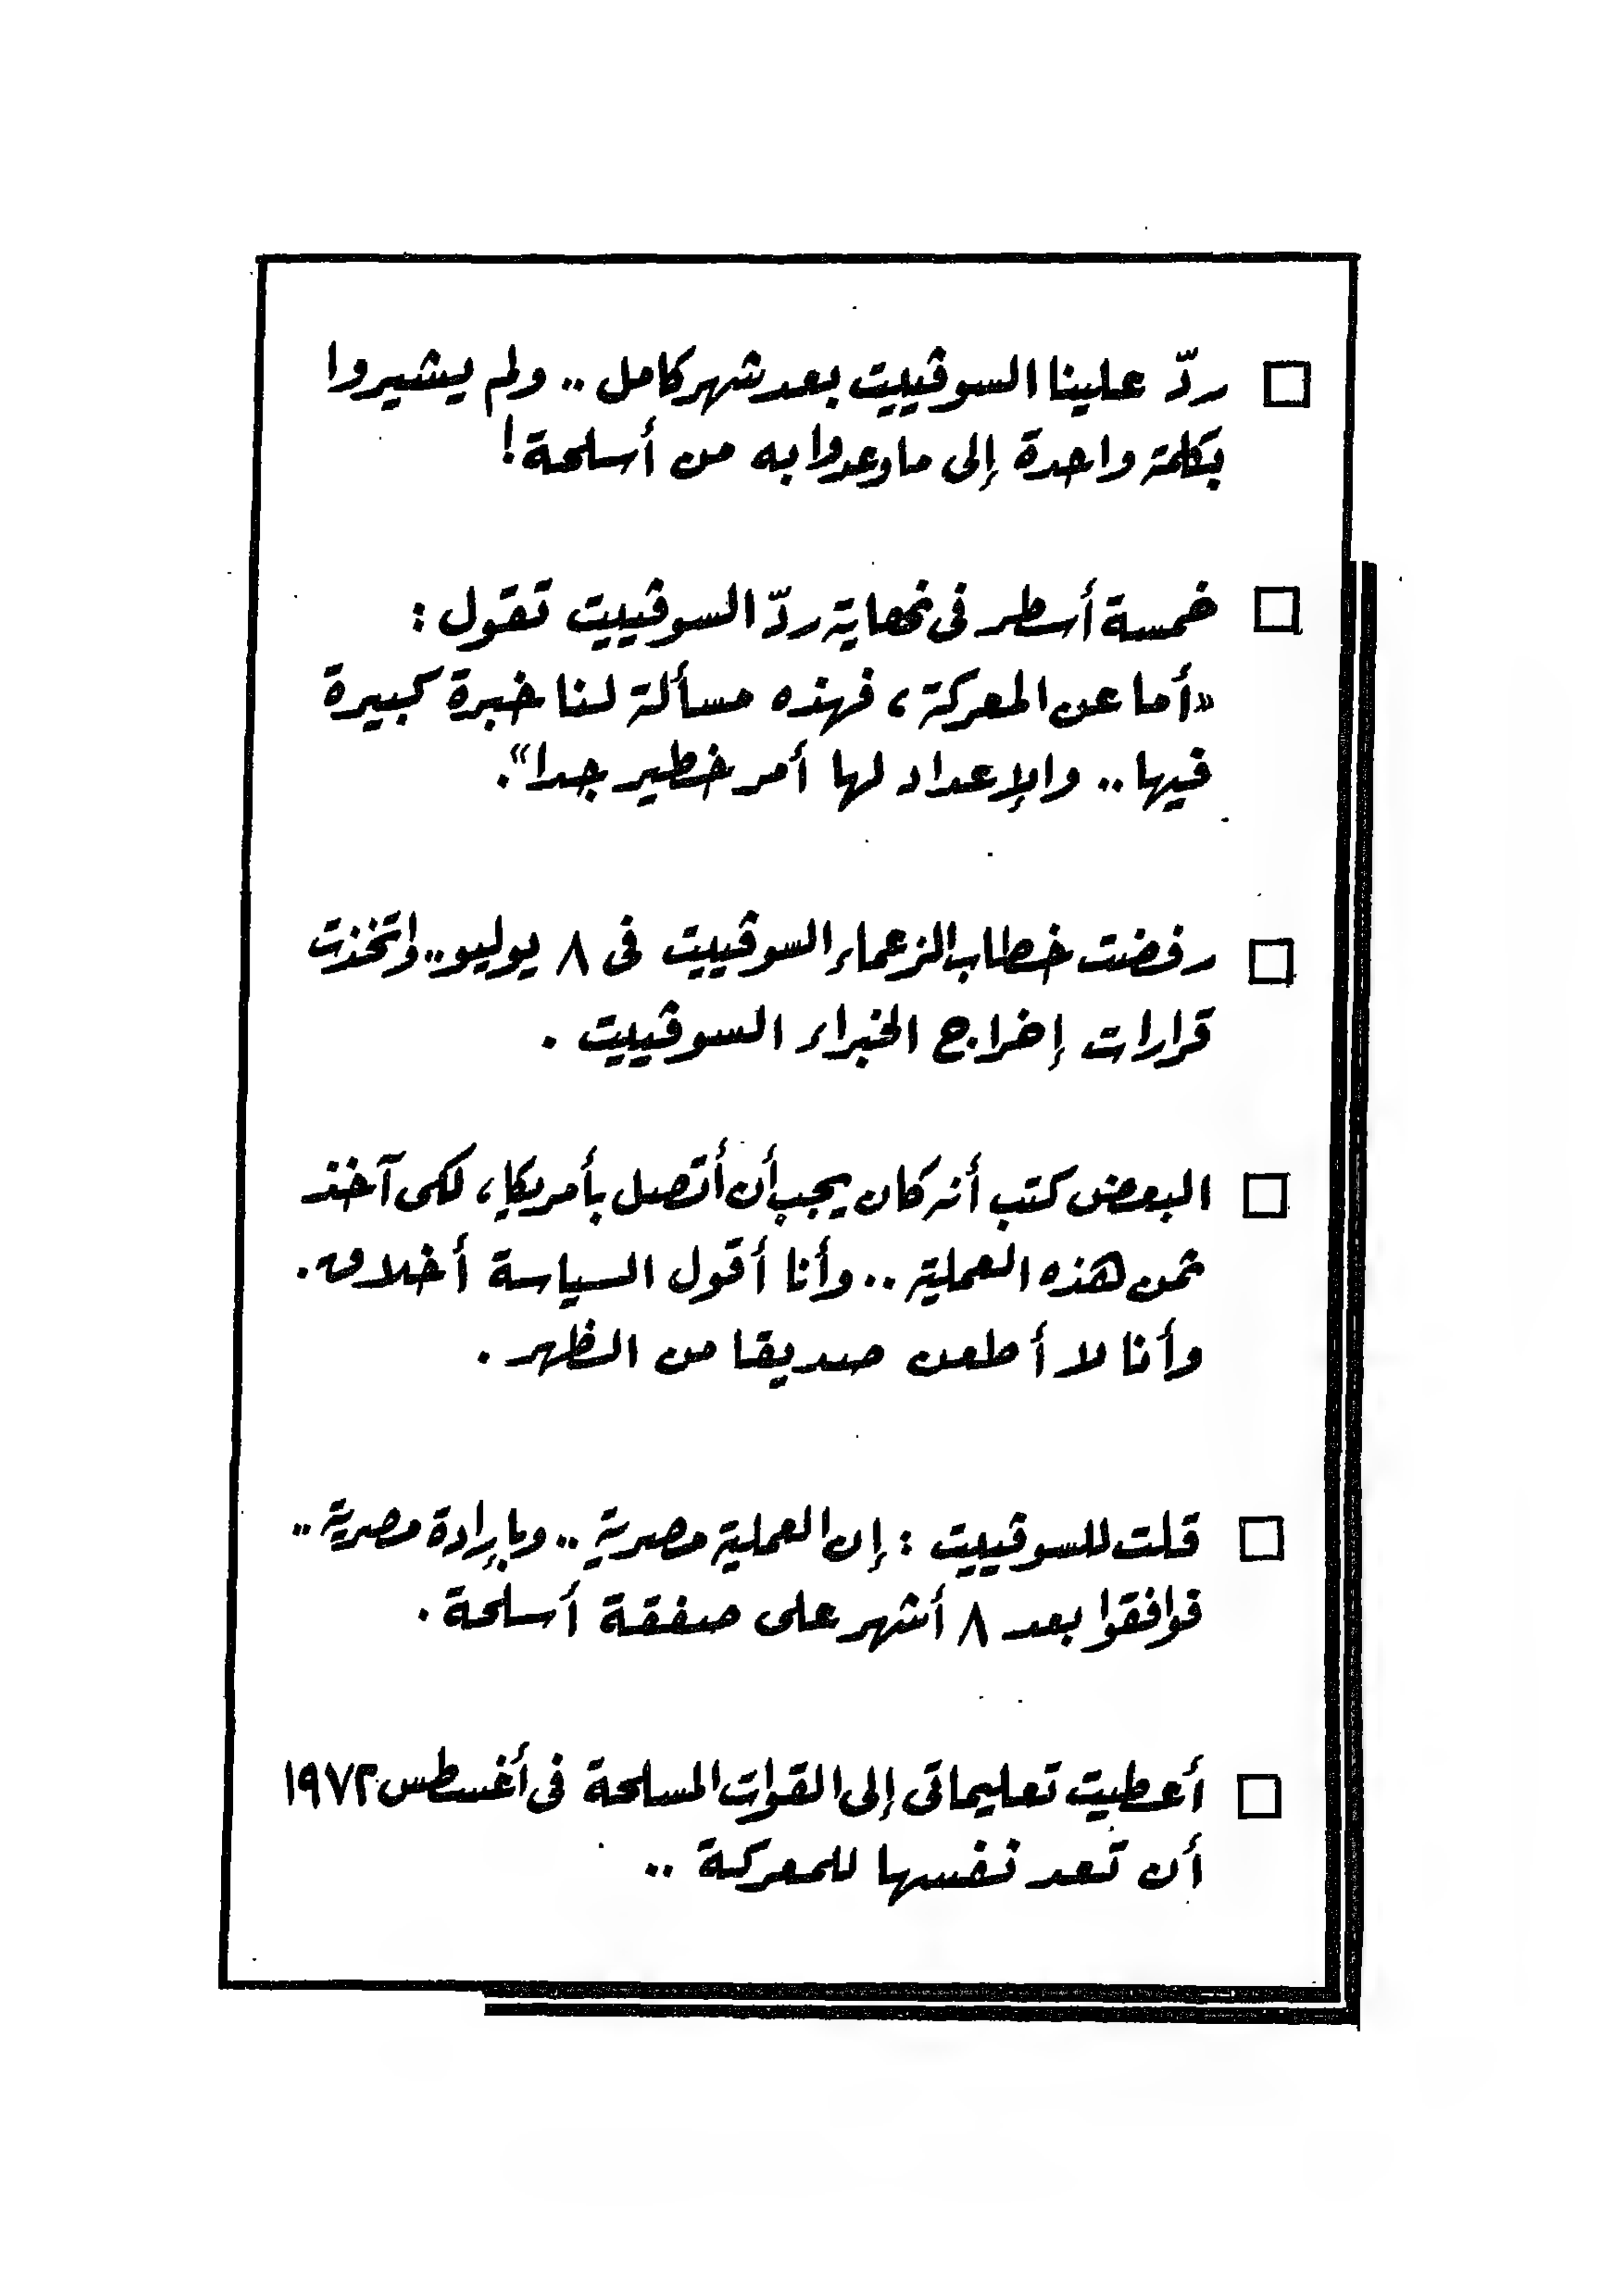 □ ردّ علينا السوڤييت بعد شهر كامل .. ولم يشيروا
بكلمة واحدة إلى ما وعدوا به من أسلحة!
□ خمسة أسطر فى نهاية ردّ السوڤييت تقول :
«أما عن المعركة ، فهذه مسألة لنا خبرة كبيرة
فيها .. والإعداد لها أمر خطير جدا».
□ رفضت خطاب الزعماء السوڤييت فى ٨ يوليو .. واتخذت
قرارات إخراج الخبراء السوڤييت .
□ البعض كتب أنه كان يجب أن أتصل بأمريكا ، لكى آخذ
ثمن هذه العملية .. وأنا أقول السياسة أخلاق .
وأنا لا أطعن صديقا من الظهر .
□ قلت للسوڤييت : إن العملية مصرية .. وبإرادة مصرية ..
فوافقوا بعد ٨ أشهر على صفقة أسلحة .
□ أعطيت تعليماتى إلى القوات المسلحة فى أغسطس ١٩٧٢
أن تعد نفسها للمعركة ..